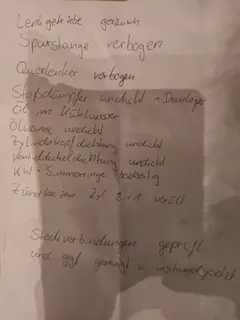 Lenkgetriebe geräusch
Spurstange verbogen
Querlenker verbogen
Stoßdämpfer undicht + Domlager
Öl im Kühlwasser
Ölwanne undicht
Zylinderkopfdichtung undicht
Ventildeckeldichtung undicht
KW - Simmerringe beidseitig
Zündkerzen Zyl 3+1 verölt
Steckverbindungen geprüft
und ggf gereinigt u. instandgesetzt